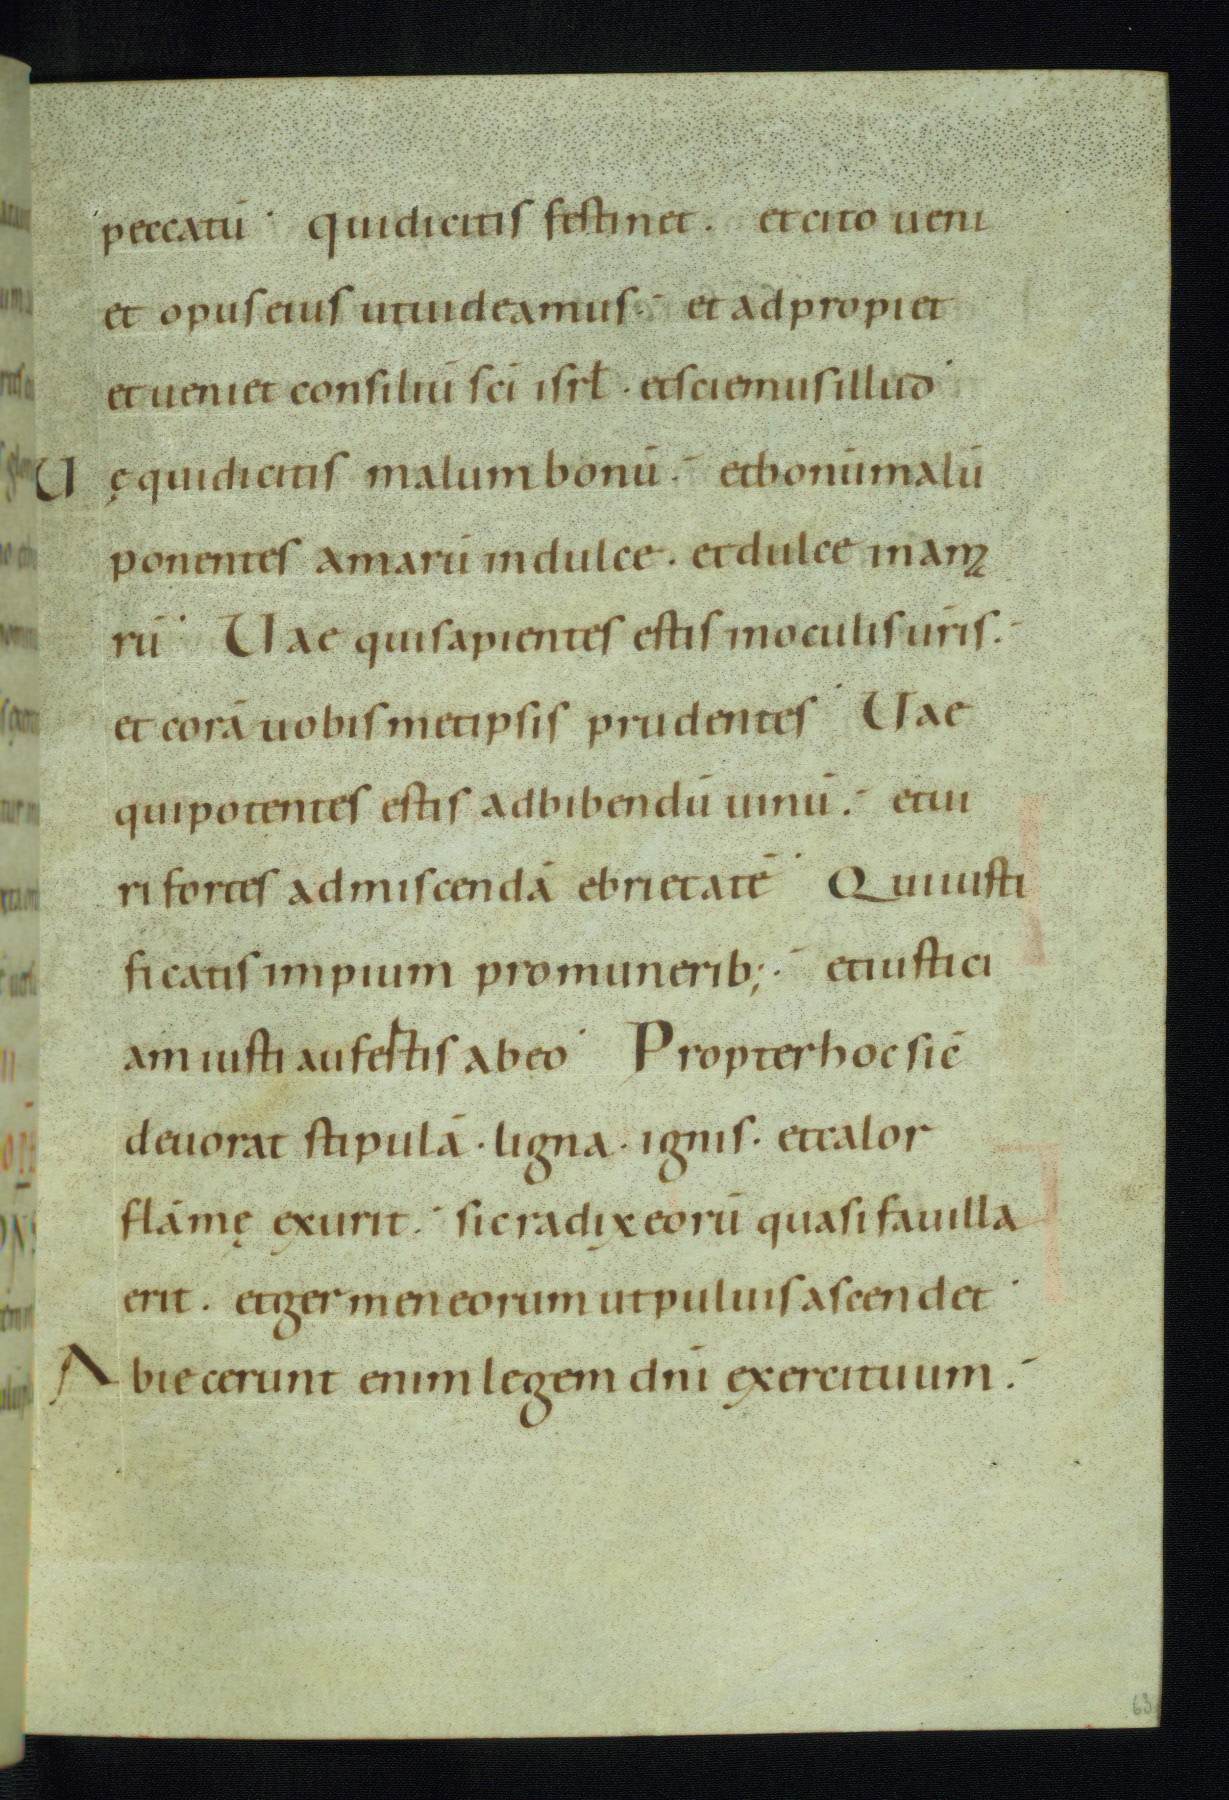 peccatū quidicitis festinet. et cito ueni
et opus eius utuideamus. et adpropiet
et ueniet consiliū scī isrł. etsciemus illud
Uę quidicitis malum bonū. etbonūmalū
ponentes amarū indulce. etdulce in ama
rū Uae quisapientes estis inoculis uris.
et corā uobismetipsis prudentes Uae
quipotentes estis adbibendū uinū. etui
ri fortes admiscendā ebrietatē Quiiusti
ficatis impium promunerib; etiustici
am iusti aufertis ab eo Propterhoc sic̄
deuorat stipulā. ligna. ignis. etcalor
flāmę exurit. sic radix eorū quasi fauilla
erit. etgermen eorum utpuluis ascendet
Abiecerunt enim legem dnī exercituum.
63